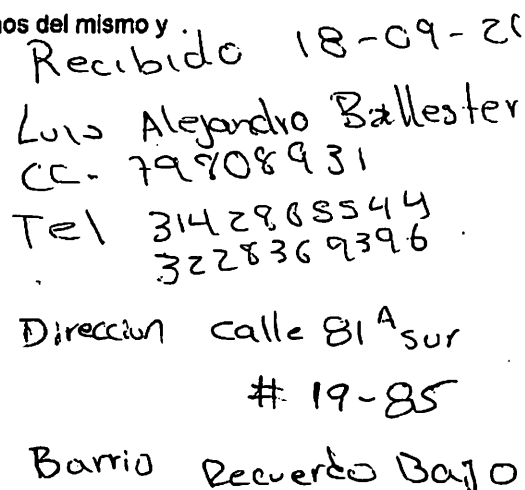 nos del mismo y
Recibido 18-09-20
Luis Alejandro Ballester
CC. 79808931
Tel 3142965544
3228369396
Direcciun calle 81 A sur
# 19-85
Barrio Recuerdo Bajo